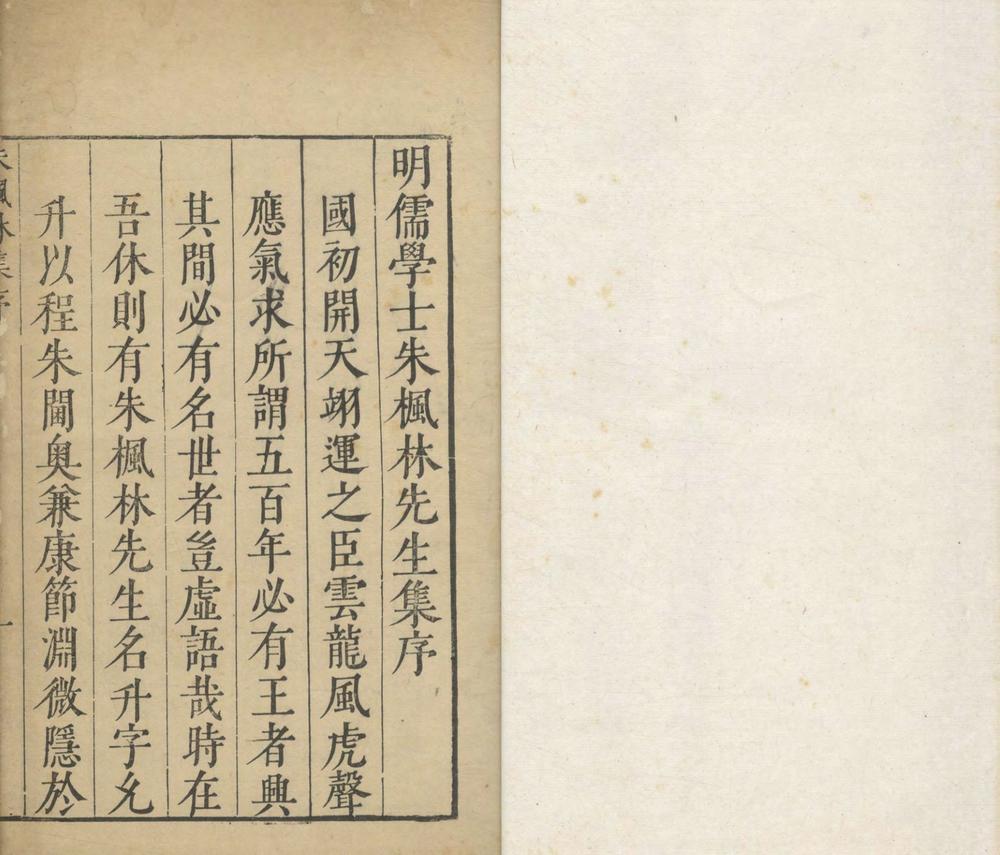 明儒學士朱楓林先生集序
國初開天翊運之臣雲龍風虎聲
應氣求所謂五百年必有王者興
其間必有名世者豈虛語哉時在
吾休則有朱楓林先生名升字允
升以程朱閫奥兼康節淵微隱於
朱楓林集序
一